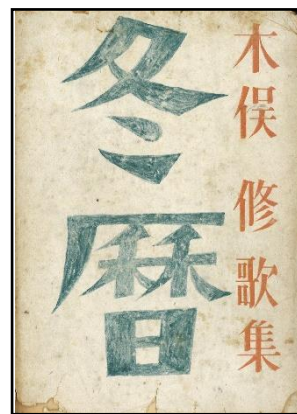 木俣 修歌集
冬暦